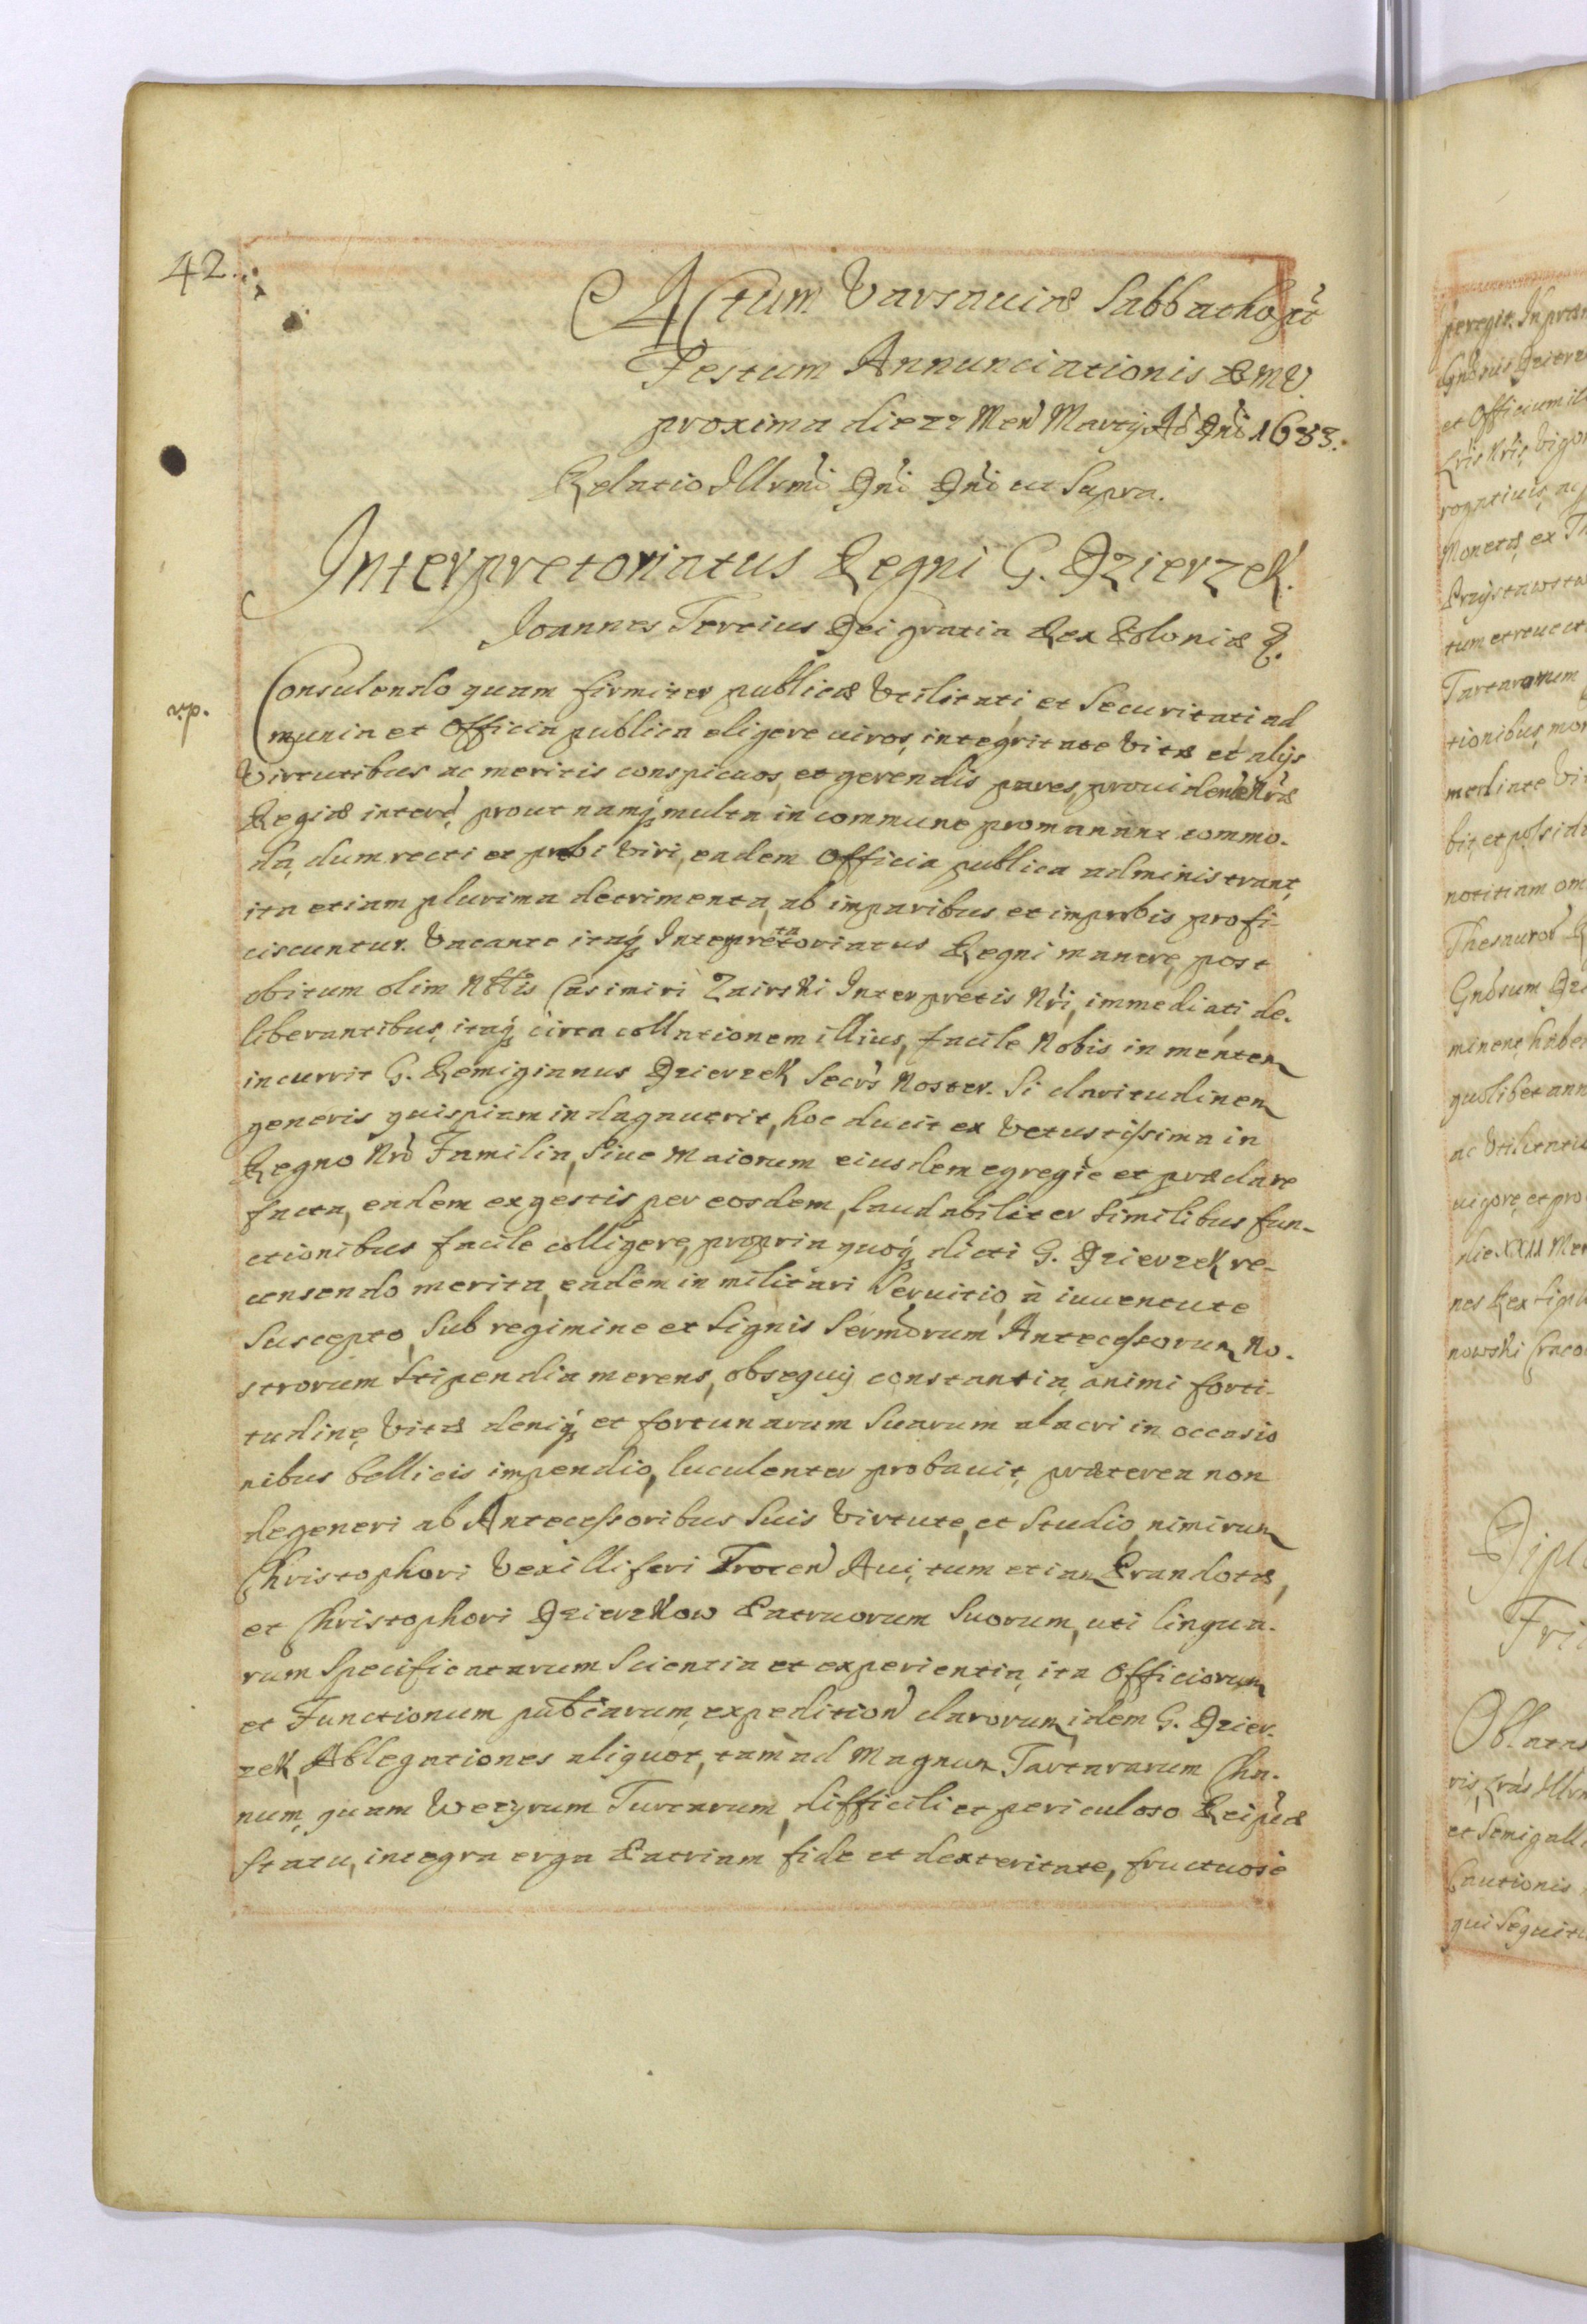 42.
Actum Varsaviæ Sabbatho pt
Festum Annunciationis B M V.
proxima die 27 Men Martij Ao Dni 1683.
Relatio Illrmi Dni Dni ut Supra.
Interpretoriatus Regni G. Dzierzek.
Joannes Tertius Dei gratia Rex Poloniæ &.
vp.
Consulendo quam firmiter publicæ Utilitati et Securitati ad
munia et Officia publica eligere viros, integritate Vitæ et alijs
Virtutibus ac meritis conspicuos, et gerendis pares, providentiæ Nræ
Regiæ interẽ, prout namq multa in commune promanant commo-
da, dum recti et probi Viri, eadem Officia publica administrant,
ita etiam plurima detrimenta, ab imparibus et improbis profi-
ciscuntur. Vacante itaq Interpretatoriatus Regni munere, post
obitum olim Nblis Casimiri Zairski Interpretis Nri, immediati, de-
liberantibus, itaq circa collationem illius, facile Nobis in mentem
incurrit G. Remigianus Dzierzek Secrs Noster. Si claritudinem
generis quispiam indagaverit, hoc ducit ex vetustissima in
Regno Nro Familia, Sive Maiorum eiusdem egregie et præclare
facta, eadem ex gestis per eosdem, laudabiliter Similibus fun-
ctionibus facile colligere, propria quoq dicti G. Dzierzek re-
censendo merita, eadem in militari Servitio, à iuventute
Suscepto, Sub regimine et Signis Sermorum Antecessorum No-
strorum Stipendia merens, obsequij constantia, animi forti-
tudine, Vitæ deniq et fortunarum Suarum alacri in occasio
nibus bellicis impendio, luculenter probavit, præterea non
degeneri ab Antecessoribus Suis Virtute, et Studio, nimirum
Christophori Vexilliferi Trocen Avi, tum etiam Prandotæ,
et Christophori Dzierzkow Patruorum Suorum, uti lingua-
rum Specificatarum Scientia et experientia, ita Officiorum
et Functionum pubcarum, expedition clarorum, idem G. Dzier-
zek, Ablegationes aliquot, tam ad Magnum Tartararum Cha-
num, quam Wezyrum Turcarum, difficili et periculoso Reipcæ
Statu, integra erga Patriam fide et dexteritate, fructuosè